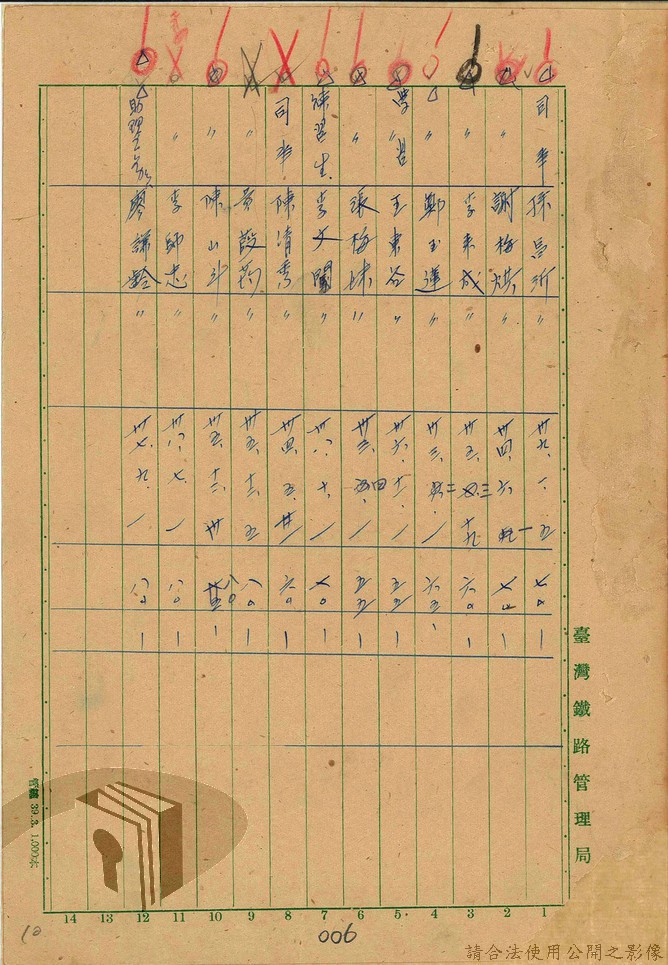 司事 孫 〃 卅九、一、五 七〇 一
〃 謝梅 〃 卅四、六、一 七 一
〃 李來成 〃 卅五、三、十九 六〇 一
〃 鄭玉蓮 〃 卅三、二、一 六五 一
學習 王東谷 〃 卅六、十一、一 五五 一
〃 張梅妹 〃 卅三、四、一 五五 一
練習生 李文 〃 卅八、十、一 七〇 一
司事 陳清秀 〃 卅四、五、廿一 六〇 一
黃 〃 卅五、十二、五 八〇 一
〃 陳山斗 〃 卅五、十二、卅 八〇 一
〃 李師志 〃 卅八、七、一 八〇 一
助理工務 廖謙齡 〃 卅七、九、一 八〇 一
臺灣鐵路管理局
39.3. 1.000本
14 13 12 11 10 9 8 7 6 5 4 3 2 1
006
10
請合法使用公開之影像